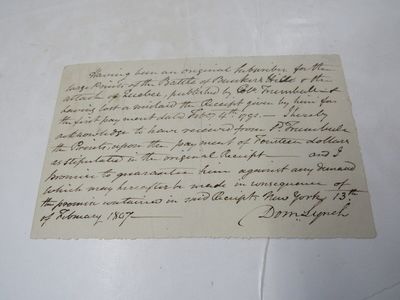 Having been an original Subscriber for the
large Prints of the Battle of Bunkers Hill & the
attack of Quebec, published by Col. Trumbull &
having lost or mislaid the Receipt given by him for
the first payment dated Feby 4th 1791 — I hereby
acknowledge to have received from J. Trumbull
the Prints, upon the payment of Fourteen dollars
as stipulated in the original Receipt — and I
promise to guarantee him against any demand
which may hereafter be made in consequence of
the promise contained in said Receipt. New York 13th
of February 1807 —
Domk. Lynch